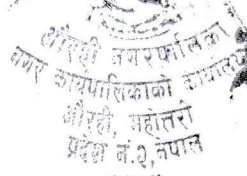 औरही नगरपालिका
नगर कार्यपालिकाको कार्यालय
औरही, महोत्तरी
प्रदेश नं.२, नेपाल